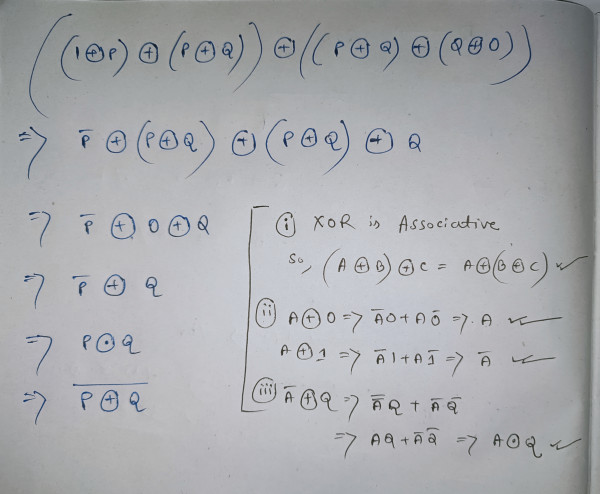 ((1⊕P) ⊕ (P⊕Q)) ⊕ ((P⊕Q) ⊕ (Q⊕0))
⇒ P̅ ⊕ (P⊕Q) ⊕ (P⊕Q) ⊕ Q
⇒ P̅ ⊕ 0 ⊕ Q
⇒ P̅ ⊕ Q
⇒ P⊙Q
⇒ \overline{P⊕Q}
(i) XOR is Associative
So, (A⊕B)⊕C = A⊕(B⊕C) ✓
(ii) A⊕0 ⇒ A̅0+A0̅ ⇒ A ✓
A⊕1 ⇒ A̅1+A1̅ ⇒ A̅ ✓
(iii) A̅⊕Q ⇒ A̿Q + A̅Q̅
⇒ AQ+A̅Q̅ ⇒ A⊙Q ✓